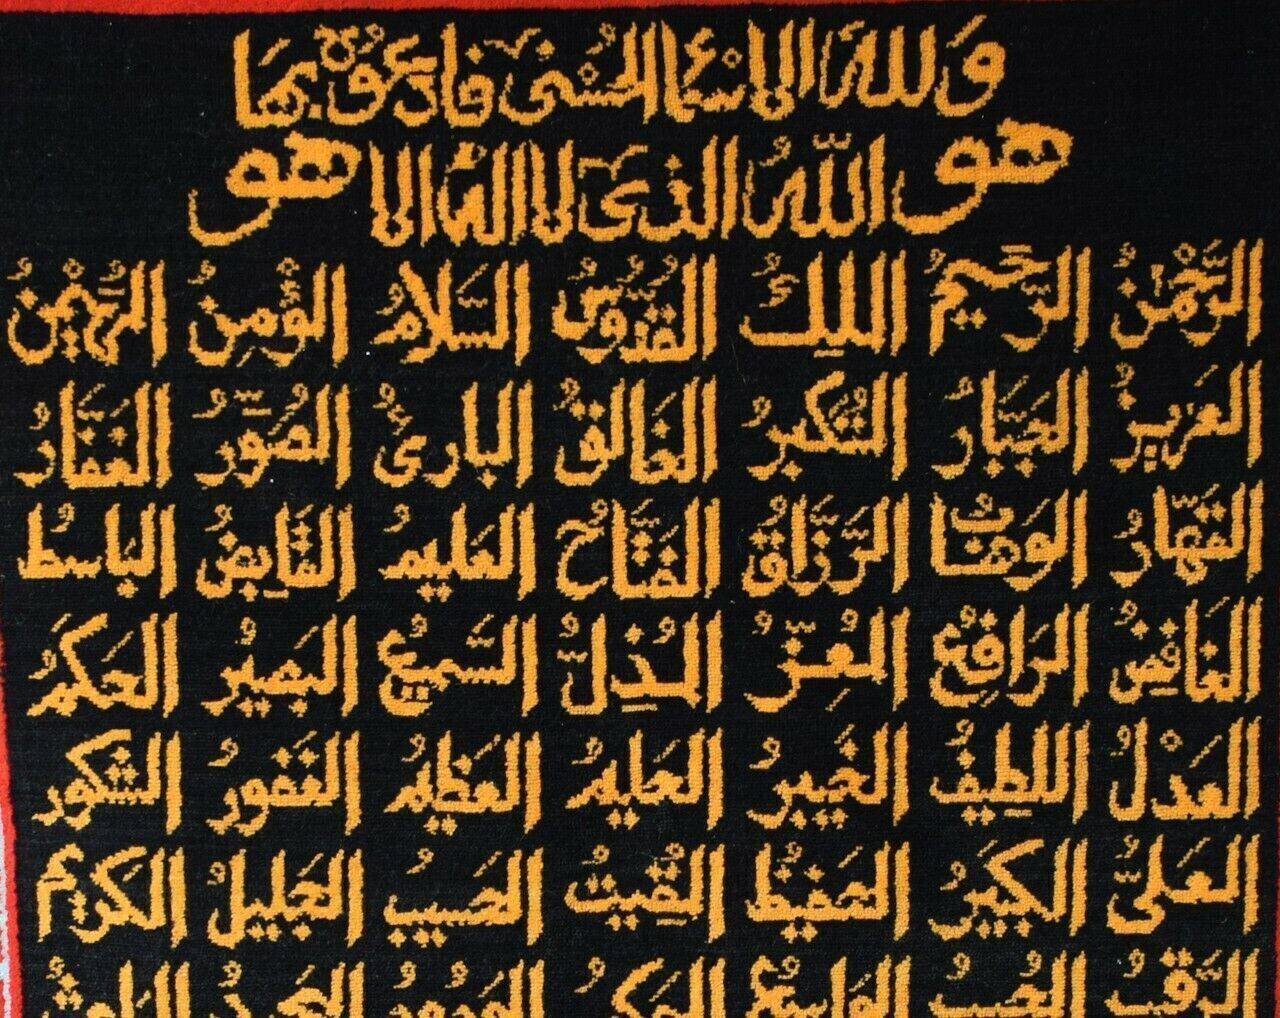 وَلله الاسماء الحسنى فادعوه بها
هو اللهُ الذى لا اله الا هو
الرَّحْمٰنُ الرَّحيمُ الملِكُ القدُّوسُ السَّلامُ المؤْمِنُ المُهَيْمِنُ
العَزيزُ الجَبَّارُ المُتَكبرُ الخَالقُ البارئُ المُصَوِّرُ الغَفَّارُ
القَهَّارُ الوَهَّابُ الرَّزَّاقُ الفَتَّاحُ العَليمُ القَابِضُ البَاسطُ
الخَافِضُ الرَافِعُ المُعِزُّ المُذِلُّ السَّميعُ البَصيرُ الحَكَمُ
العَدْلُ اللطِيفُ الخَبيرُ العَليمُ العَظيمُ الغَفورُ الشَكورُ
العَلىُّ الكَبيرُ الحَفيظُ المُقِيتُ الحَسيبُ الجَليلُ الكَريمُ
الرَّقيبُ المُجيبُ الوَاسِعُ